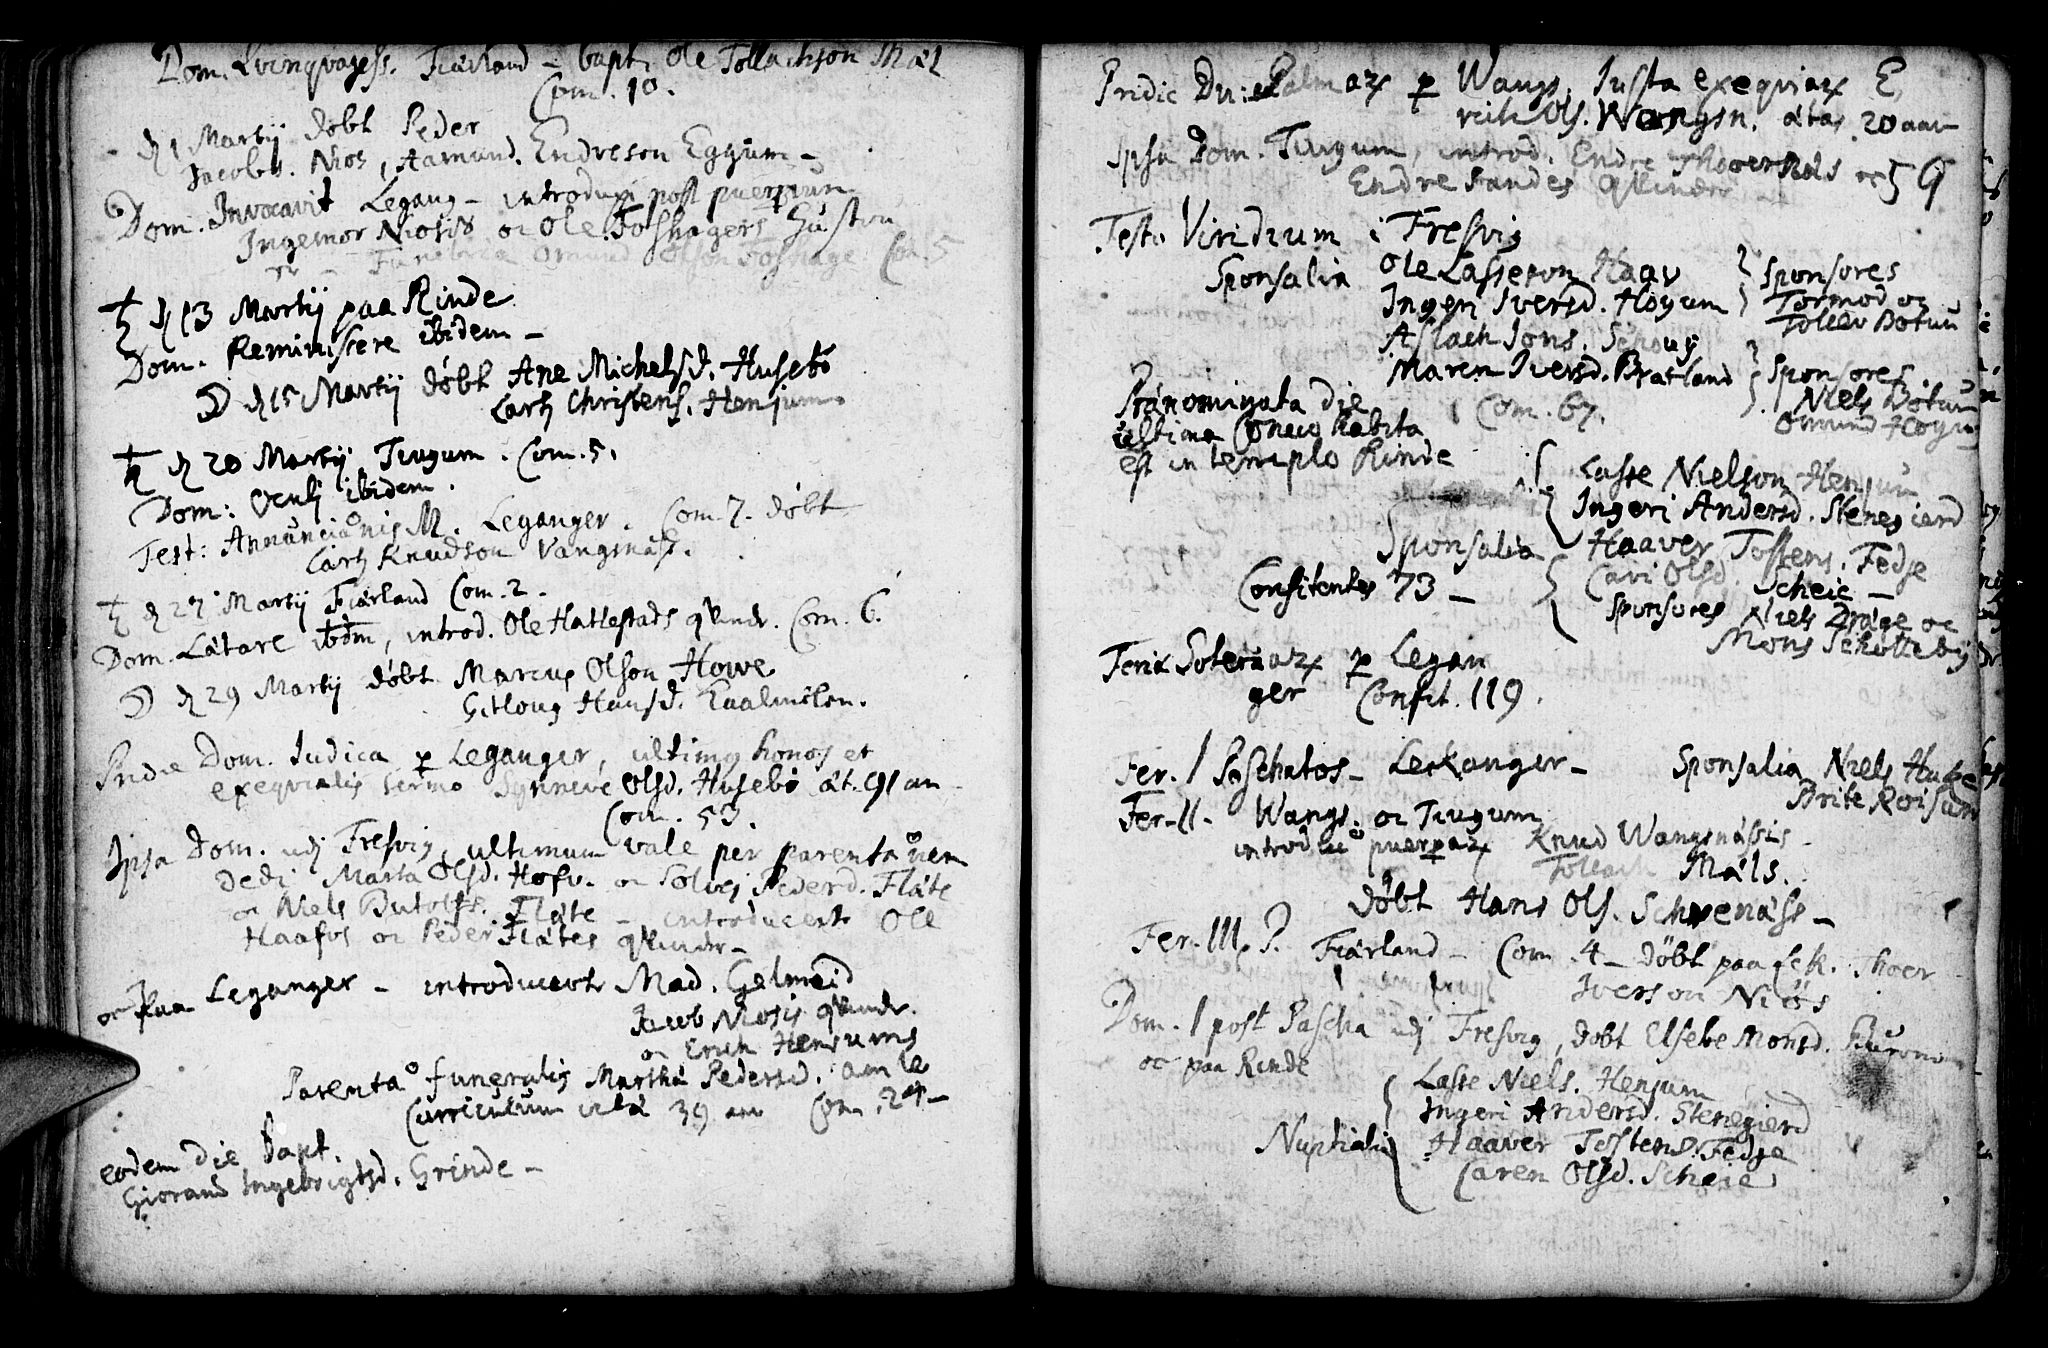 Dom. Qvinqvagess. Fiærland – bapt. Ole Tollachson Mæl
Com. 10.
d 1 Martij døbt Peder
Jacobs. Nios, Aamund. Endreson Eggum –
Dom. Invocavit Legang – introduxi post puerpium
Ingemor Niosis oc Ole Foshagers Hustru
Funebria Omund Olson Foshage Com. 5
♄ d 13 Martij paa Rinde
Dom. Reminiscere ibidem –
☽ d 15 Martij døbt Ane Michelsd. Husebø
Carj Christens. Henjum
♄ d 20 Martij Tiugum. Com. 5.
Dom: Oculj ibidem.
Fest: Annunciaōnis M. Leganger. Com. 7. døbt
Carj Knudson Vangsnæs.
♄ d 27 Martij Fiærland Com. 2.
Dom. Lætare ibdm, introd. Ole Hatlestads qvinde. Com. 6.
☽ d 29 Martij døbt Marcus Olson Howe
Gitloug Hansd.
Pridie Dom. Iudica p Leganger, ultimus honos et
exeqvialis sermo Synneve Olsd. Husebø æt. 91 an
Com. 53.
Ipsa Dom. udj Fresvig, ultimum vale per parentaōnem
dedi Marta Olsd. Hofv. oc Solvej Pederd. Flåte
oc Niels Butolfs. Flåte – introducert Ole
Haafvs oc Peder Flåtes qvinder –
oc paa Leganger – introducert Mad. Gelmeid
Jacob Niosis qvinde.
oc Erich Henjums
Parentaō funeralis Martha Pedersd.
Curriculum vitæ 39 ann Com. 24 –
eodem die bapt.
Giorand Ingebrigtsd. Grinde –
Pridie Dn: Palmarx p Wangs. Iusta exeqviarx E,
rich Ols. Wangsn. ætas 20 aar –
Ipsa Dom. Tiugum, introd. Endre oc 59
Endre Fandes qvinder
Festo Viridium i Fresvig
Sponsalia Ole Lasseson Haav } Sponsores
Ingeri Iversd. Høyum } Tormod oc
Tollev Botun
Aslach Jons.
Maren Iversd. Bratland } Sponsores
Niels Botun
Omund Høyum
Com. 67.
Prænominata die
ultima habita
est in templo Rinde
Lasse Nielson Henjum
Ingeri Andersd. Stenegierd
Sponsalia Haaver Tostens. Fedje
Cari Olsd. Scheie –
Confitentes 73 –
Sponsores Niels Dræge oc
Mons Schottebÿ
Feriæ Soteriarx p Legan
ger Confit. 119.
Fer. I Paschatos – Leckanger – Sponsalia Niels Husebø
Brite Røisum
Fer. II – Wangs. oc Tiugum
introductō puerparx Knud Wangsnæsis
Tollach Mæls.
døbt Hans Ols. Schwenæss –
Fer. III. P. Fiærland – Com. 4 – døbt paa Leck. Thoer
Iverson Niøs
Dom. 1 post Pascha udj Fresvig, døbt Elsebe Monsd.
oc paa Rinde
Lasse Niels. Henjum
Ingeri Andersd. Stenegierd
Nuptialia Haaver Tostens. Fedje
Caren Olsd. Scheie